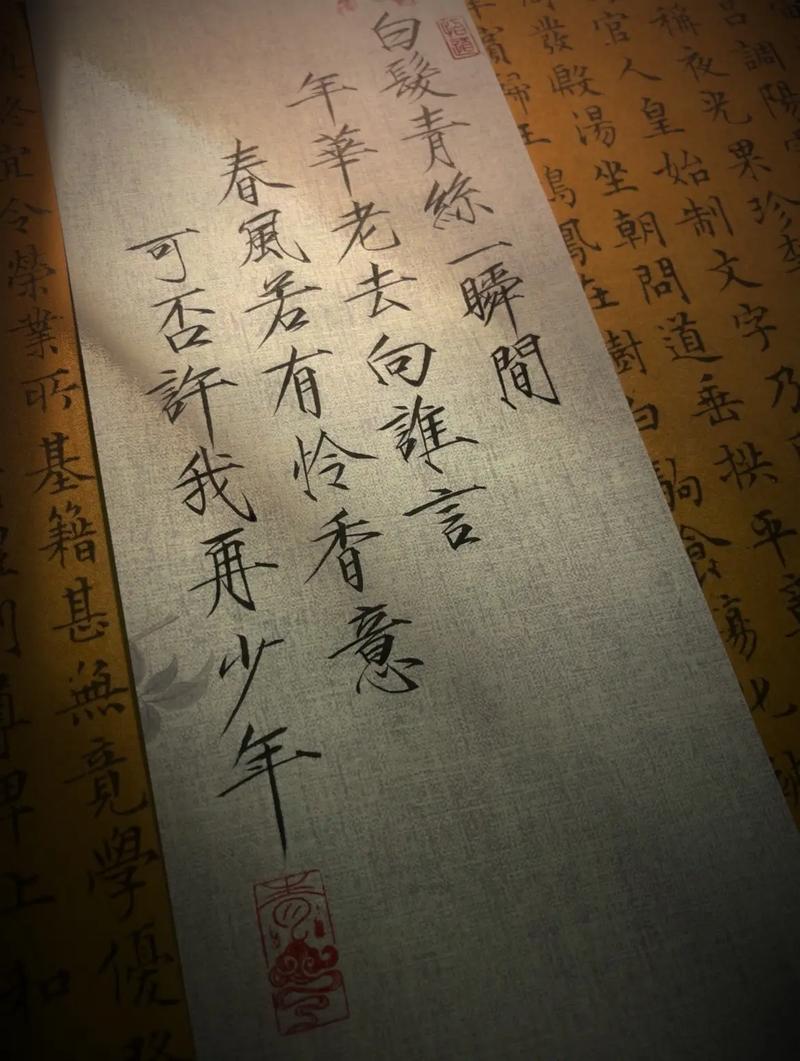 調陽
稱夜光果珍李
官人皇始制文字乃
發殷湯坐朝問道垂拱平章
賓歸王鳴鳳在樹白駒食場
白髮青絲一瞬間
年華老去向誰言
春風若有怜香意
可否許我再少年
宜令榮業所基籍甚無竟學優
上和